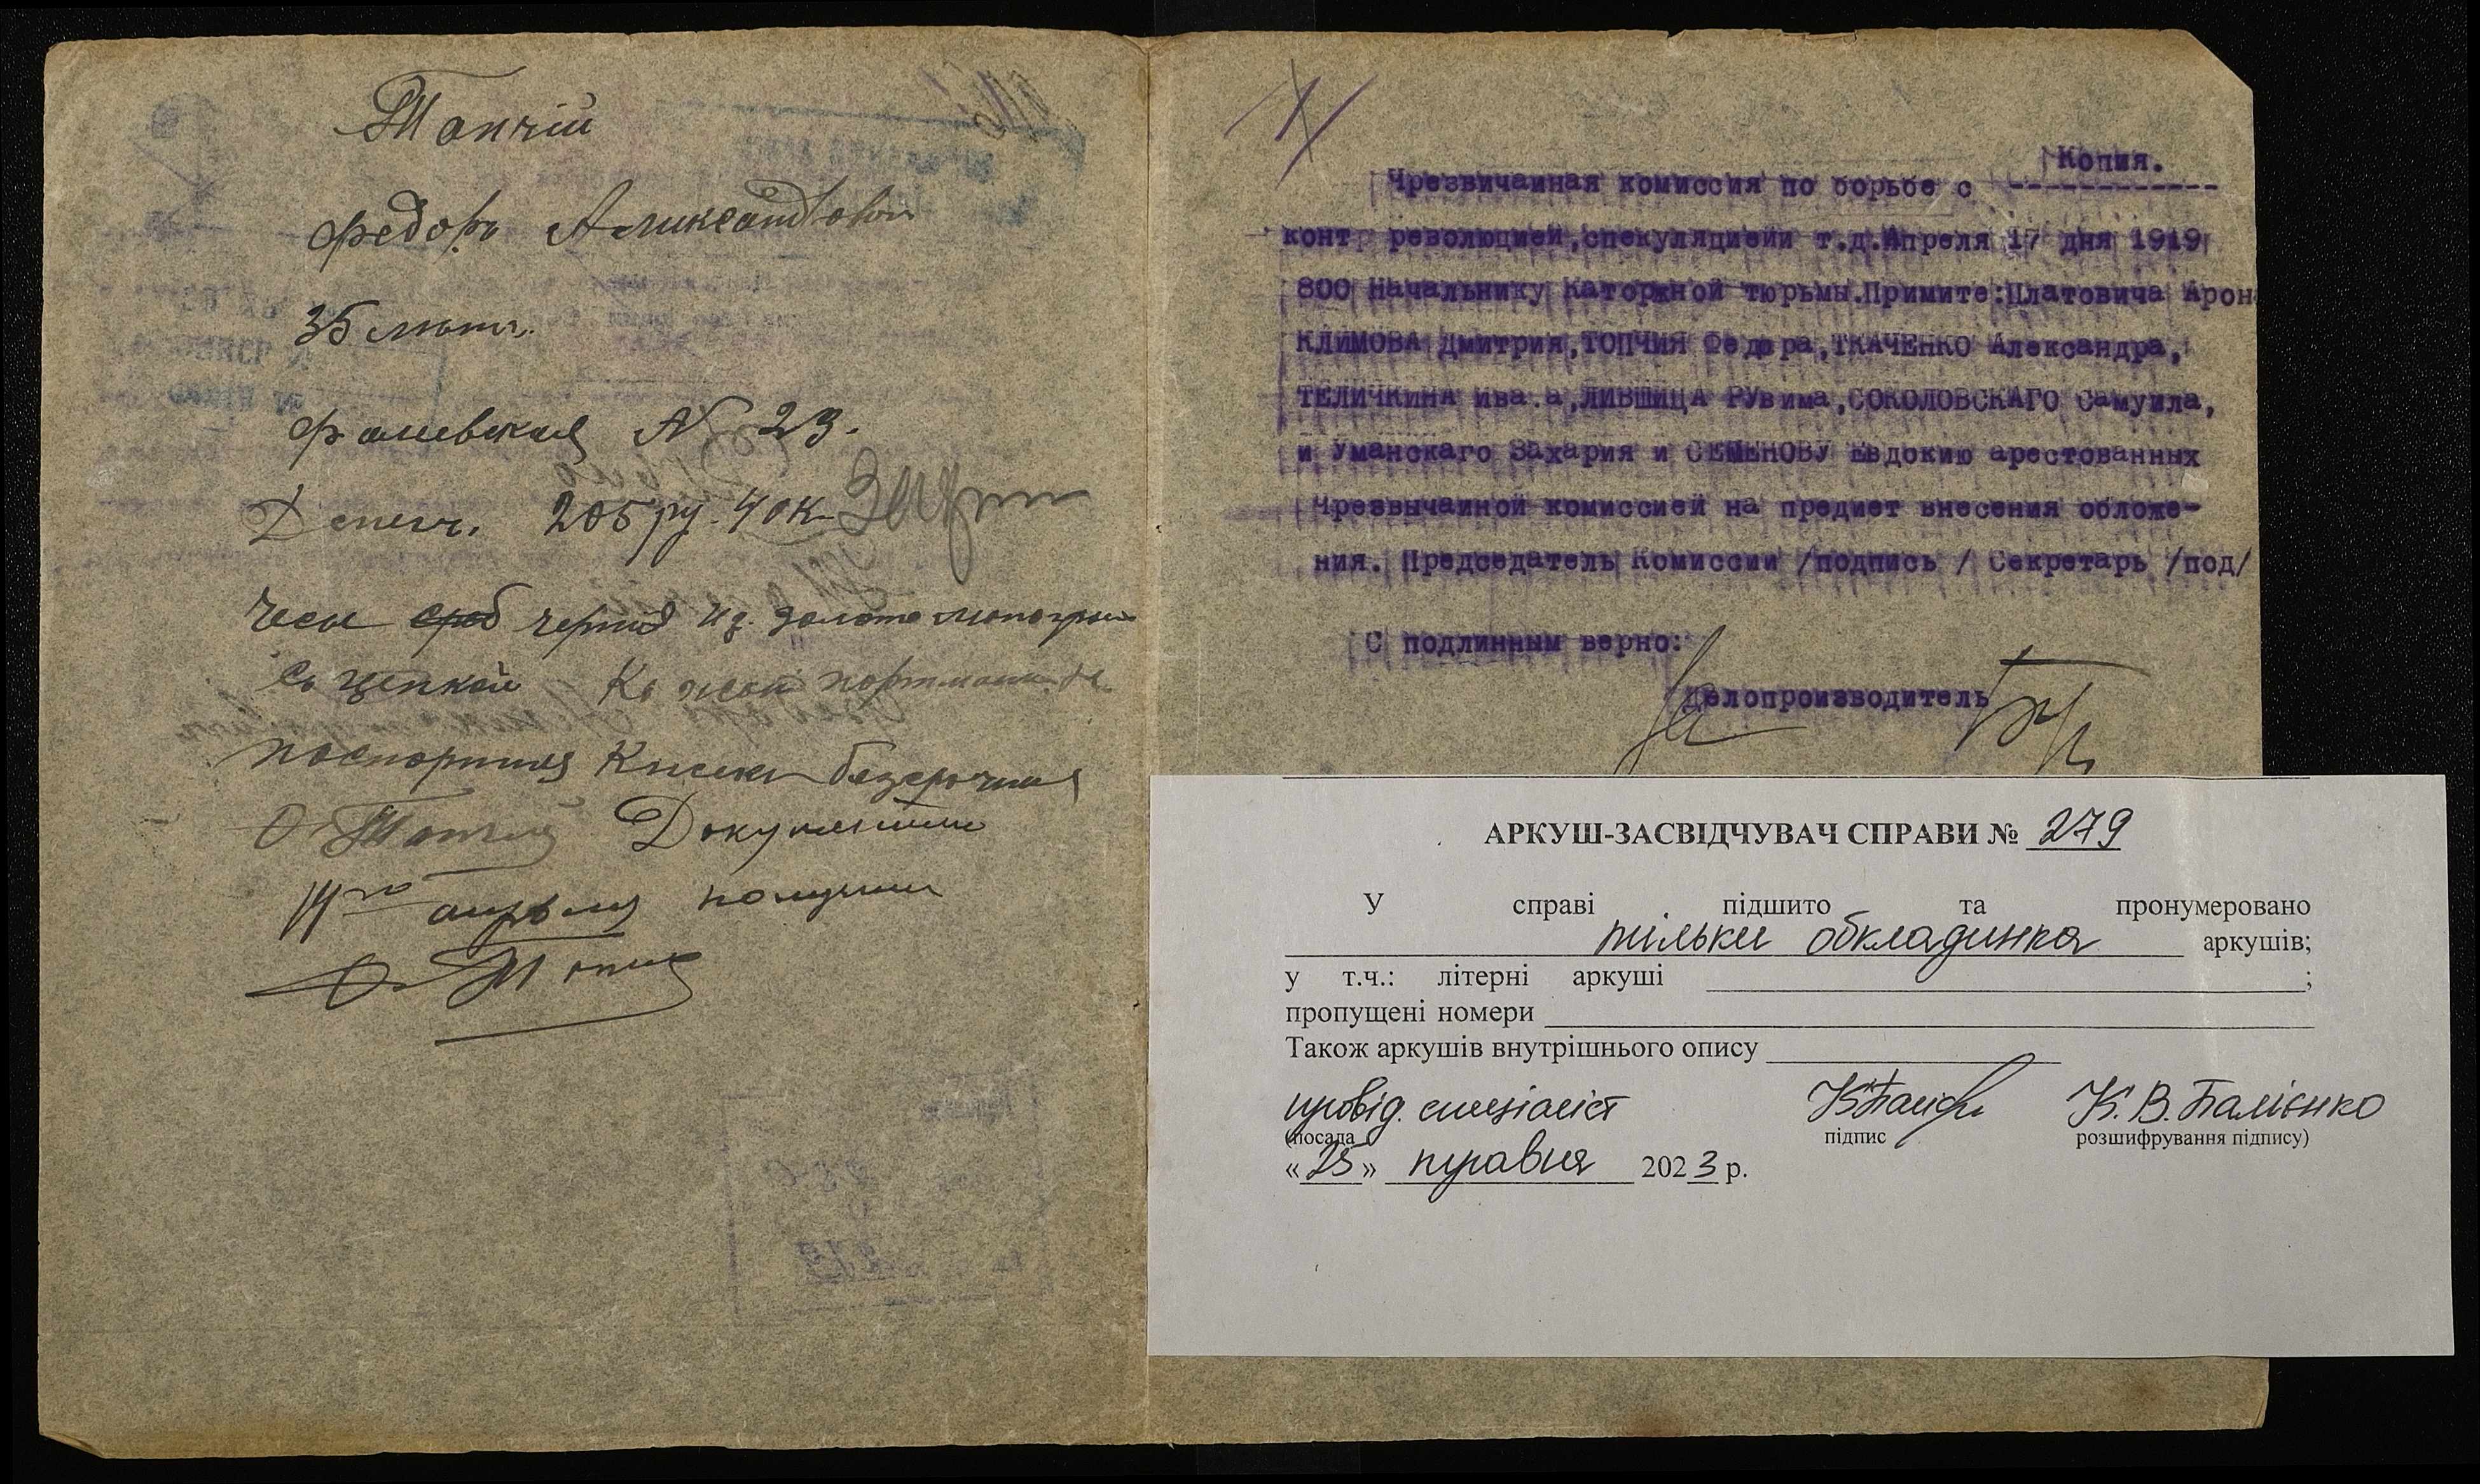 Топчій
Федоръ Аликсандрович
35 лютъ.
Фалиевская № 23.
Денегъ. 205 ру. 40 к
Чесы черныи из. золото
Съ цепкой
паспортная Книжка безсрочная
О Топчий Документы
17го апреля получил
Ф Топчи
Копия.
Чрезвичайная комиссия по борьбе с
конт революцией,спекуляциейи т.д.Апреля 17 дня 1919
800 Начальнику Каторжной тюрьмы.Примите:Платовича Арон
КЛИМОВА Дмитрия,ТОПЧИЯ Федора,ТКАЧЕНКО Александра,
ТЕЛИЧКИНА Ива.а,ЛИВШИЦА РУвима,СОКОЛОВСКАГО Самуила,
и Уманскаго Захария и СЕМЕНОВУ Евдокию арестованных
Чрезвычайной комиссией на предмет внесения обложе-
ния. Председатель Комиссии /подпись / Секретарь /под/
С подлинным верно:
Делопроизводитель
АРКУШ-ЗАСВІДЧУВАЧ СПРАВИ № 279
У справі підшито та пронумеровано
тільки обкладинка аркушів;
у т.ч.: літерні аркуші ;
пропущені номери
Також аркушів внутрішнього опису
провід. спеціаліст К. В. Балієнко
(посада підпис розшифрування підпису)
«25» травня 2023 р.